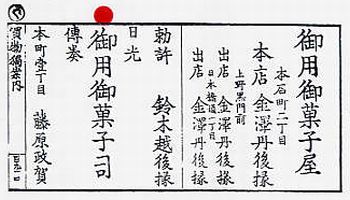 御用御菓子屋
本石町二丁目
本店 金澤丹後掾
上野黒門前
出店 金澤丹後掾
日本橋通二丁目
出店 金澤丹後掾
勅許 鈴木越後掾
日光
御用御菓子司
傳奏
本町壹丁目 藤原政賀
買物獨案内